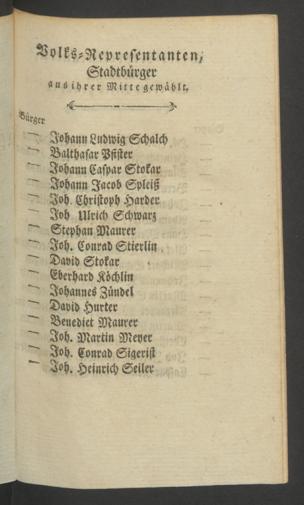 Volks-Representanten,
Stadtbürger
aus ihrer Mitte gewählt.
Bürger
— Johann Ludwig Schalch
— Balthasar Pfister
— Johann Caspar Stokar
— Johann Jacob Spleiß
— Joh. Christoph Harder
— Joh Ulrich Schwarz
— Stephan Maurer
— Joh. Conrad Stierlin
— David Stokar
— Eberhard Köchlin
— Johannes Zündel
— David Hurter
— Benedict Maurer
— Joh. Martin Meyer
— Joh. Conrad Sigerist
— Joh. Heinrich Seiler